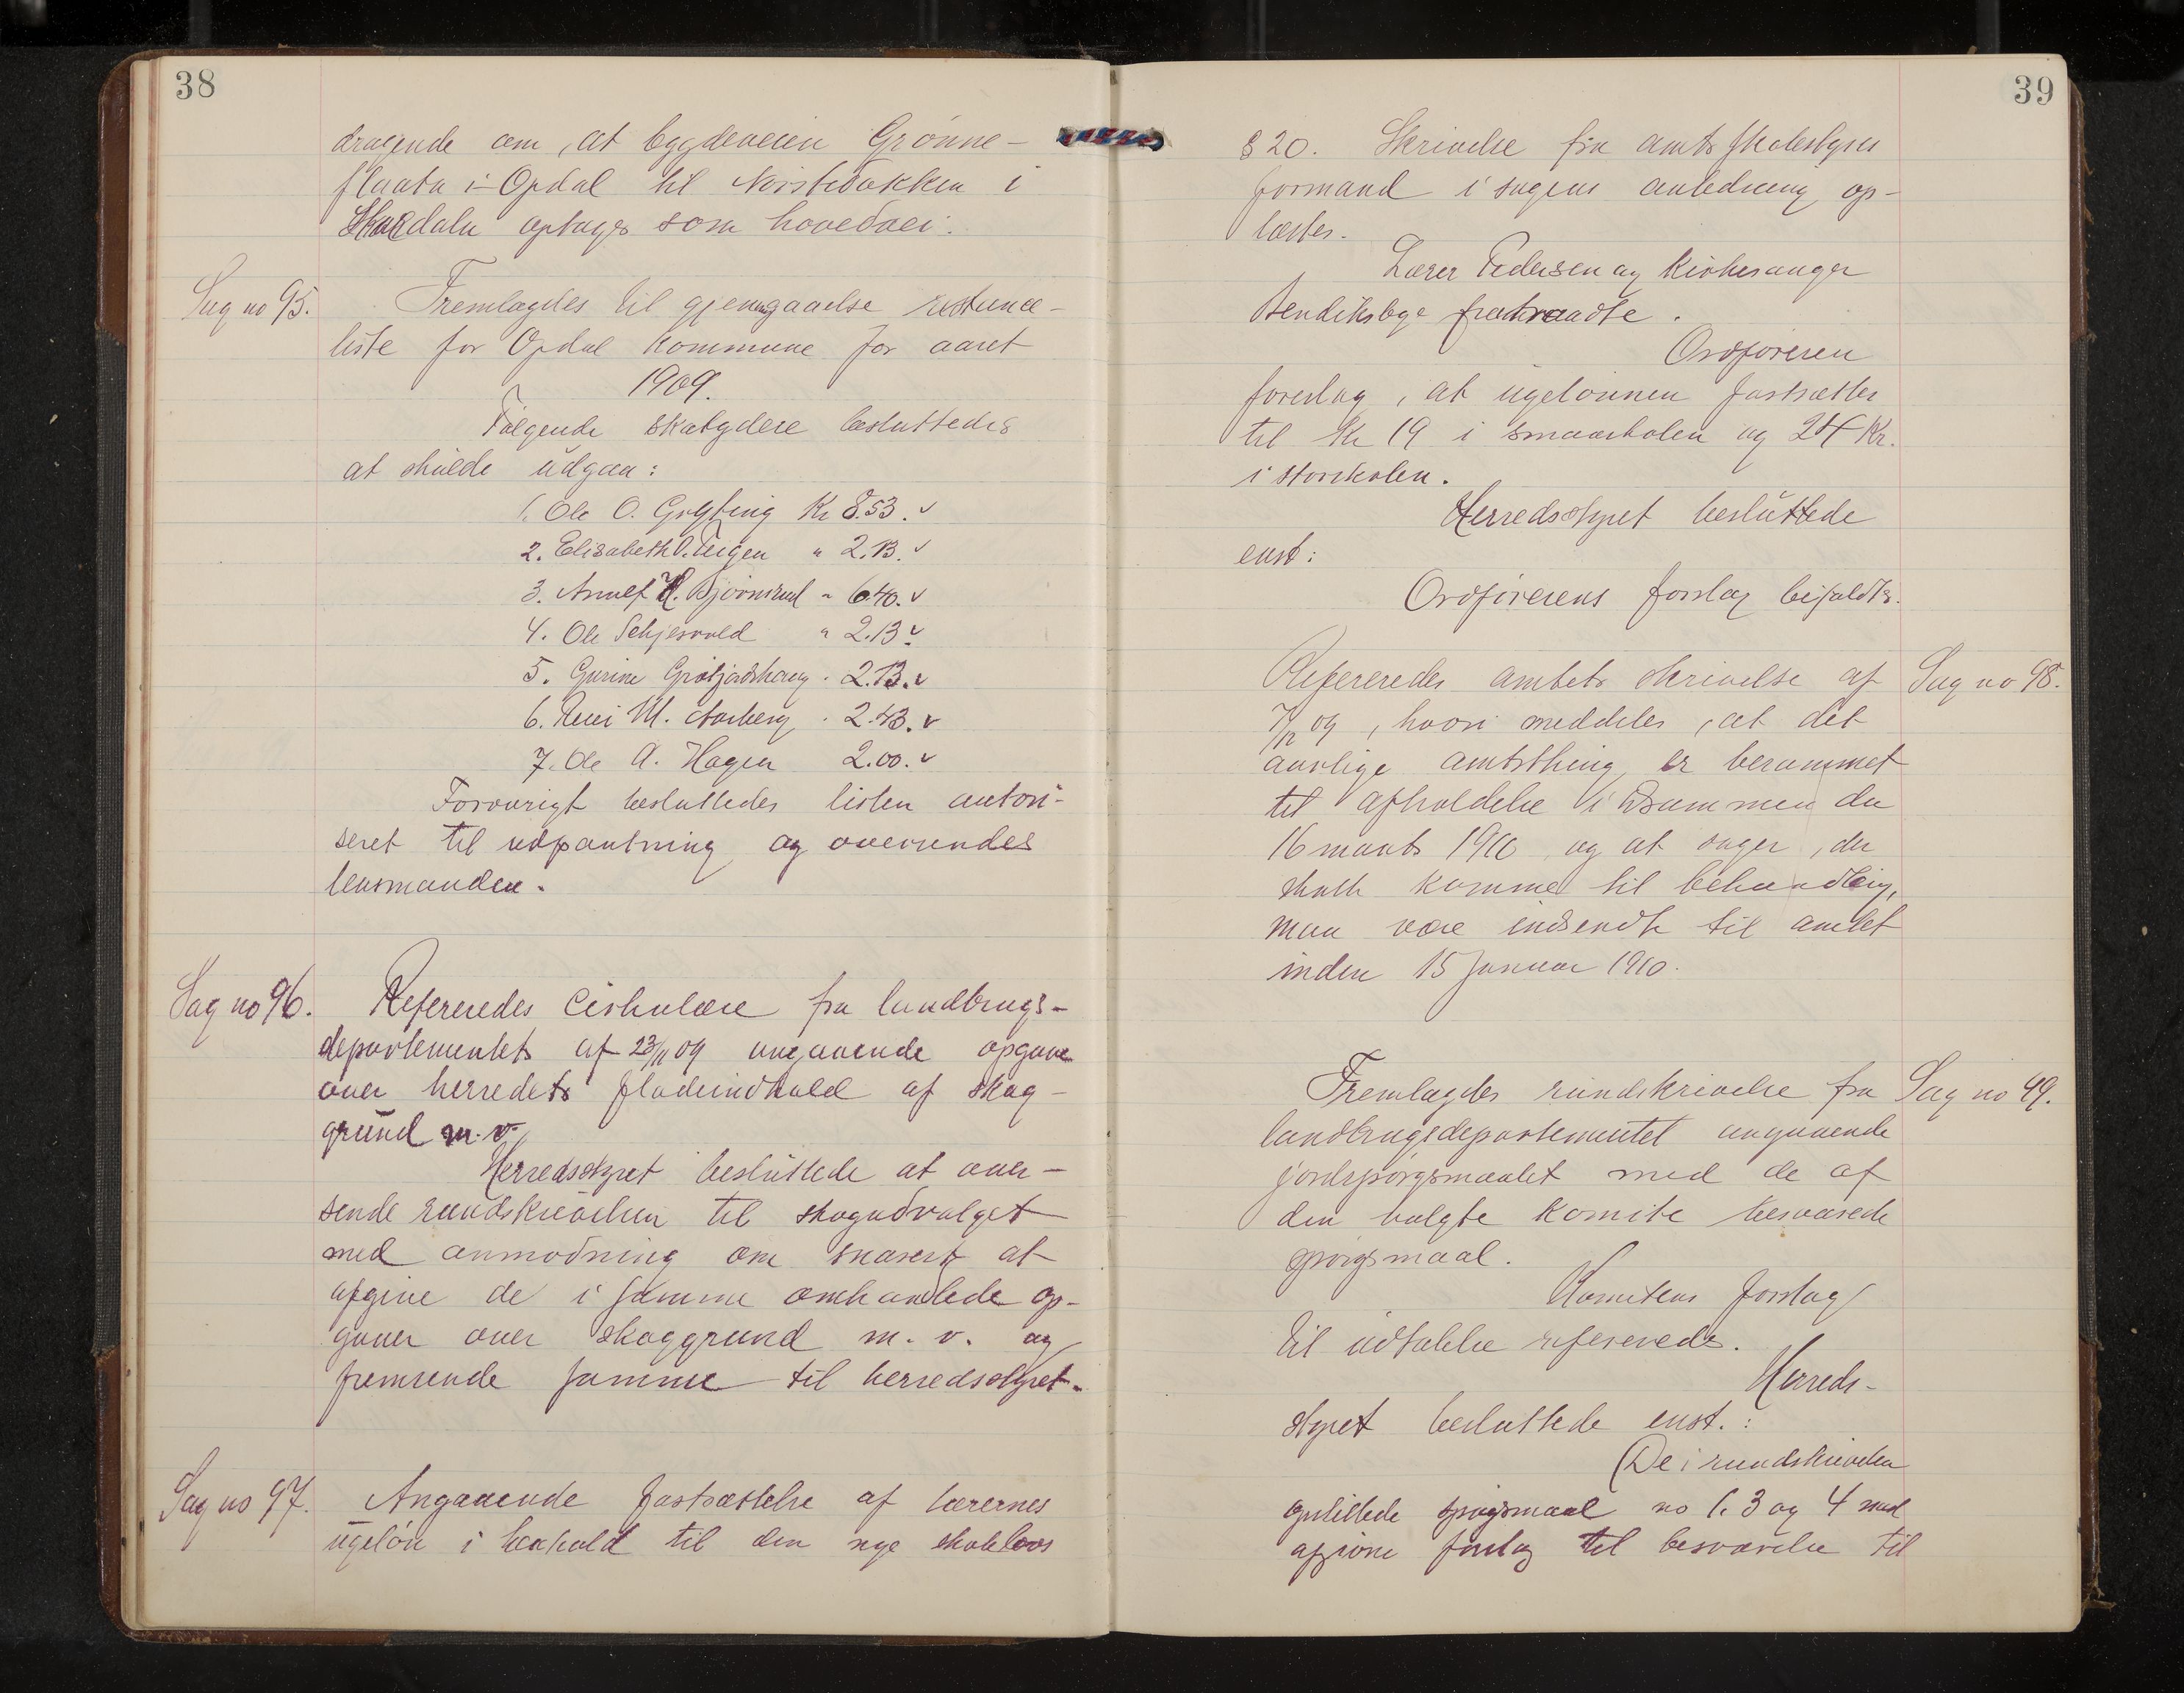 38
dragende om, at bygdeveien Grønne-
flaata i Opdal til Norstebakken i
Skurdalen optages som hovedvei.
Sag no 95.
Fremlagdes til gjennemgaaelse restance-
liste for Opdal kommune for aaret
1909.
Følgende skatydere besluttedes
at skulde udgaa:
1. Ole O. Kr 8.53.
2. Elisabeth O. Teigen " 2.13.
3. H. Bjørnsrud " 6.40.
4. Ole " 2.13
5. Gurine " 2.13.
6. M. Aasberg " 2.43.
7. Ole A. Hagen 2.00.
Forøvrigt besluttedes listen autori-
seret til udpantning og oversendes
lensmanden.
Sag no 96.
Refereredes Cirkulære fra landbrugs-
departementets af 23/11 09 angaaende opgave
over herredets fladeindhold af skog-
grund m.v.
Herredsstyret besluttede at over-
sende rundskrivelsen til skogudvalget
med anmodning om snarest at
afgive de i samme omhandlede op-
gaver over skoggrund m.v. og
fremsende samme til herredsstyret.
Sag no 97.
Angaaende fastsættelse af lærernes
ugeløn i henhold til den nye skolelovs
39
§ 20. Skrivelse fra amtsskolestyrets
formand i sagens anledning op-
læstes.
Lærer Pedersen og Kirkesanger
fratraadte.
Ordføreren
foreslog, at ugelønnen fastsættes
til Kr 19 i smaaskolen og 24 Kr.
i storskolen.
Herredsstyret besluttede
enst:
Ordførerens forslag bifaldtes.
Sag no 98.
Refereredes amtets skrivelse af
7/12 09, hvori meddeles, at det
aarlige amtsthing er berammet
til afholdelse i Drammen den
16 marts 1910 og at sager, der
skulle komme til behandling,
maa være indsendt til amtet
inden 15 Januar 1910.
Sag no 99.
Fremlagdes rundskrivelse fra
landbrugsdepartementet angaaende
jordspørgsmaalet med de af
den valgte komite besvarede
spørgsmaal.
Komiteens forslag
til udtalelse refereredes.
Herreds-
styret besluttede enst.:
De i rundskrivelsen
opstillede spørgsmaal no 1, 3 og 4 med
afgivne forslag til besvarelse til